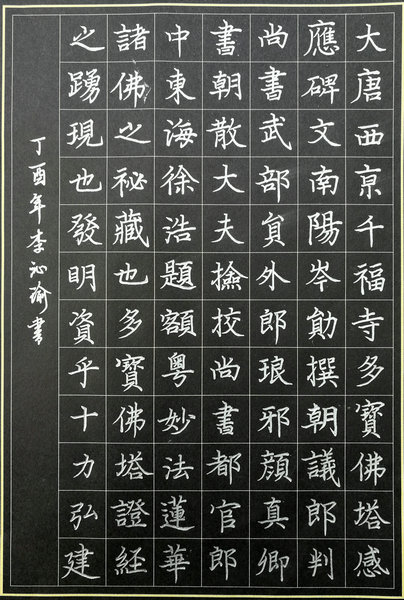 大唐西亰千福寺多寶佛塔感
應碑文南陽岑勛撰朝議郎判
尚書武部員外郎琅邪顔真卿
書朝散大夫撿挍尚書都官郎
中東海徐浩題額粵妙法蓮華
諸佛之祕藏也多寶佛塔證經
之踴現也發明資乎十力弘建
丁酉年李沁瑜書